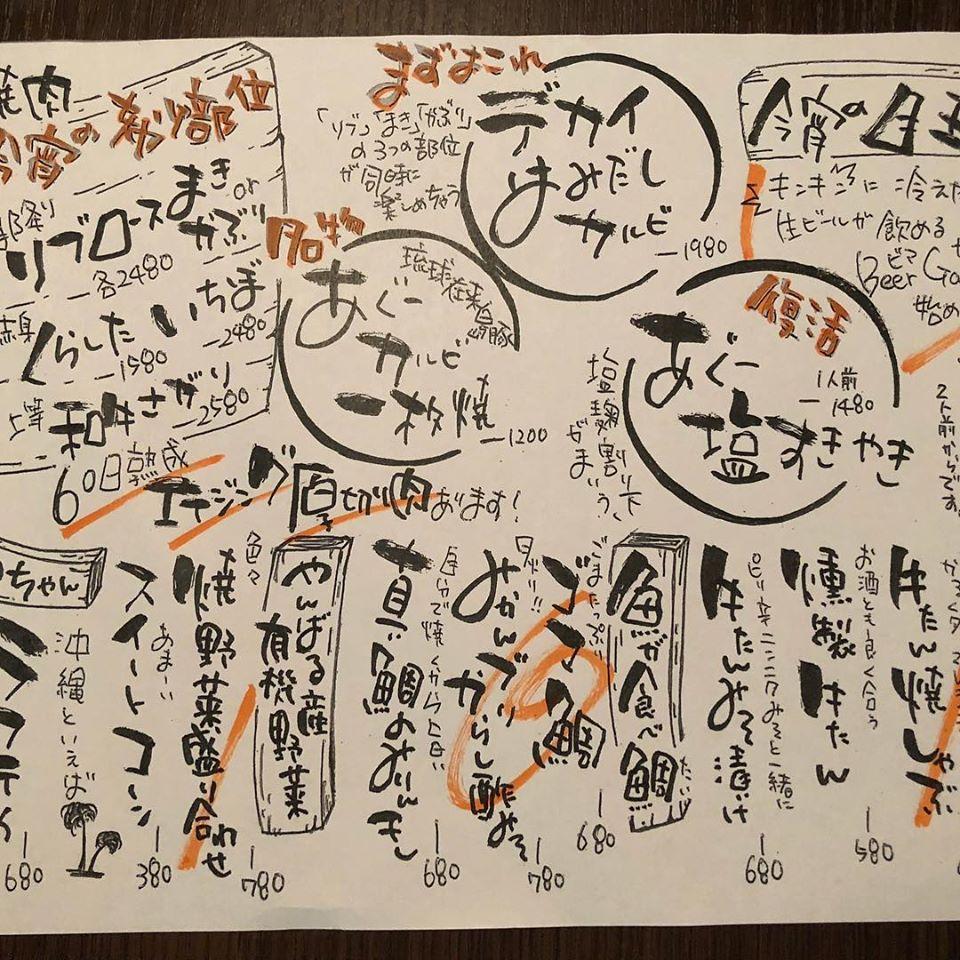 焼肉
今宵の秘部位
リブロース
まきor
かぶり
各2480
くらした
1580
いちぼ
2480
赤身
5等
和牛さがり
2580
60日熟成
エイジング厚切り肉あります!
まずはこれ
「リブ」「まき」「かぶり」
の3つの部位
が同時に
楽しめちゃう
デカイ
はみだし
カルビ
1980
名物
琉球在来
あぐー
カルビ
一枚焼
1200
今宵の
キンキンに冷えた
生ビールが飲める
ビア
Beer
始め
復活
あぐー
塩すきやき
1人前
1480
塩麹割り下
がうまい
2人前からです。
牛たん焼しゃぶ
お酒とも良く合う
燻製牛たん
580
ピリ辛ニンニクみそと一緒に
牛たんみそ漬け
680
魚が食べ鯛
たい
ごまたっぷり
ゴマ鯛
680
旨い!!
みかんブリからし酢みそ
780
自分で焼くから旨い
真鯛のみりんぼし
680
やんばる産
有機野菜
色々
焼野菜盛り合わせ
780
あまーい
スイートコーン
380
沖縄といえば
ちゃん
680